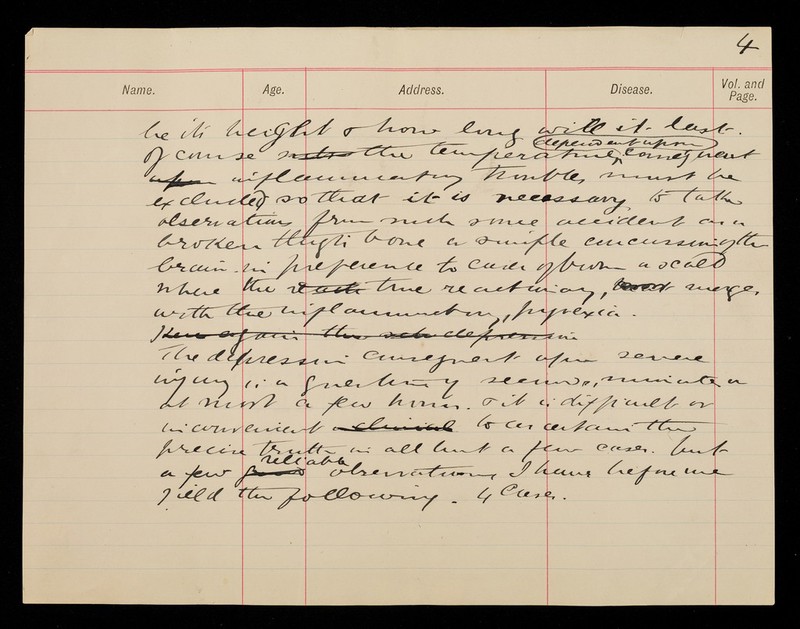 4
Name. Age. Address. Disease. Vol. and Page.
be its height & how long will it last.
dependent upon
Of course the temperature, consequent
upon inflammatory trouble, must be
excluded so that it is necessary to take
observations from such some accident as a
broken thigh bone or simple concussion of the
brain in preference to cases of burn or scald
where the true reaction may, most merge,
with the inflammatory, pyrexia.
Here again the depression
The depression consequent upon severe
injury is a question of seconds, minutes or
at most a few hours. & it is difficult or
inconvenient clinical to ascertain the
precise truth in all but a few cases. but
reliable
a few good observations I have before me
yield the following. 4 Cases.